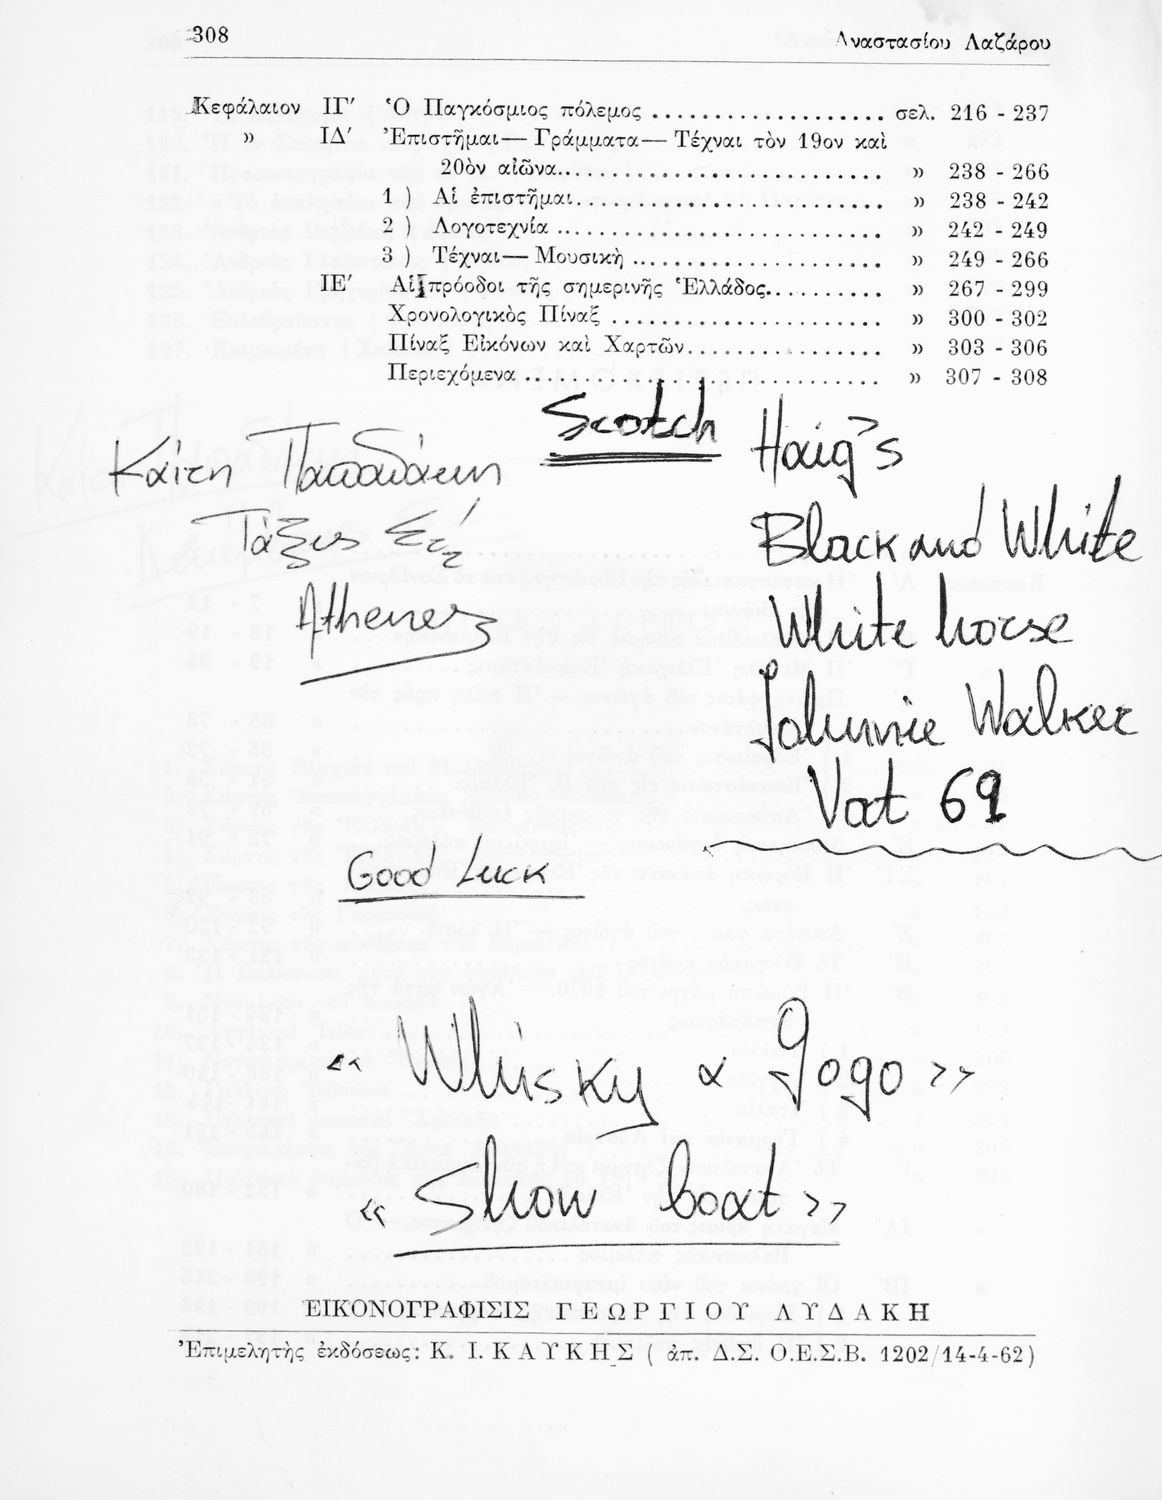 308 Ἀναστασίου Λαζάρου
Κεφάλαιον ΙΓ′ Ὁ Παγκόσμιος πόλεμος .................. σελ. 216 - 237
» ΙΔ′ Ἐπιστῆμαι— Γράμματα— Τέχναι τὸν 19ον καὶ
20ὸν αἰῶνα......................... » 238 - 266
1 ) Αἱ ἐπιστῆμαι........................ » 238 - 242
2 ) Λογοτεχνία ......................... » 242 - 249
3 ) Τέχναι— Μουσικὴ ................... » 249 - 266
ΙΕ′ Αἱ πρόοδοι τῆς σημερινῆς Ἑλλάδος.......... » 267 - 299
Χρονολογικὸς Πίναξ ..................... » 300 - 302
Πίναξ Εἰκόνων καὶ Χαρτῶν............... » 303 - 306
Περιεχόμενα ............................ » 307 - 308
Scotch
Haig's
Black and White
White horse
Johnnie Walker
Vat 69
Καίτη Παπαδάκη
Τάξις Στ′
Athenes
Good Luck
« Whisky α gogo »
« Show boat »
ΕἸΚΟΝΟΓΡΑΦΙΣΙΣ ΓΕΩΡΓΙΟΥ ΛΥΔΑΚΗ
Ἐπιμελητὴς ἐκδόσεως: Κ. Ι. ΚΑΥΚΗΣ ( ἀπ. Δ.Σ. Ο.Ε.Σ.Β. 1202/14-4-62)